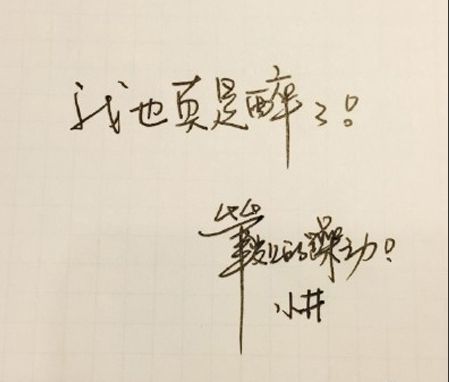 我也真是醉了!
的躁动!
小井